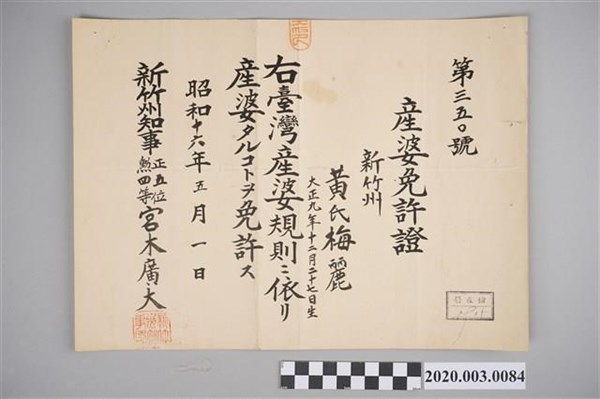 第三五〇號
産婆免許證
新竹州
黄氏梅麗
大正九年十二月二十七日生
右臺灣産婆規則ニ依リ
産婆タルコトヲ免許ス
昭和十六年五月一日
新竹州知事正五位勲四等宮木廣大
2020.003.0084